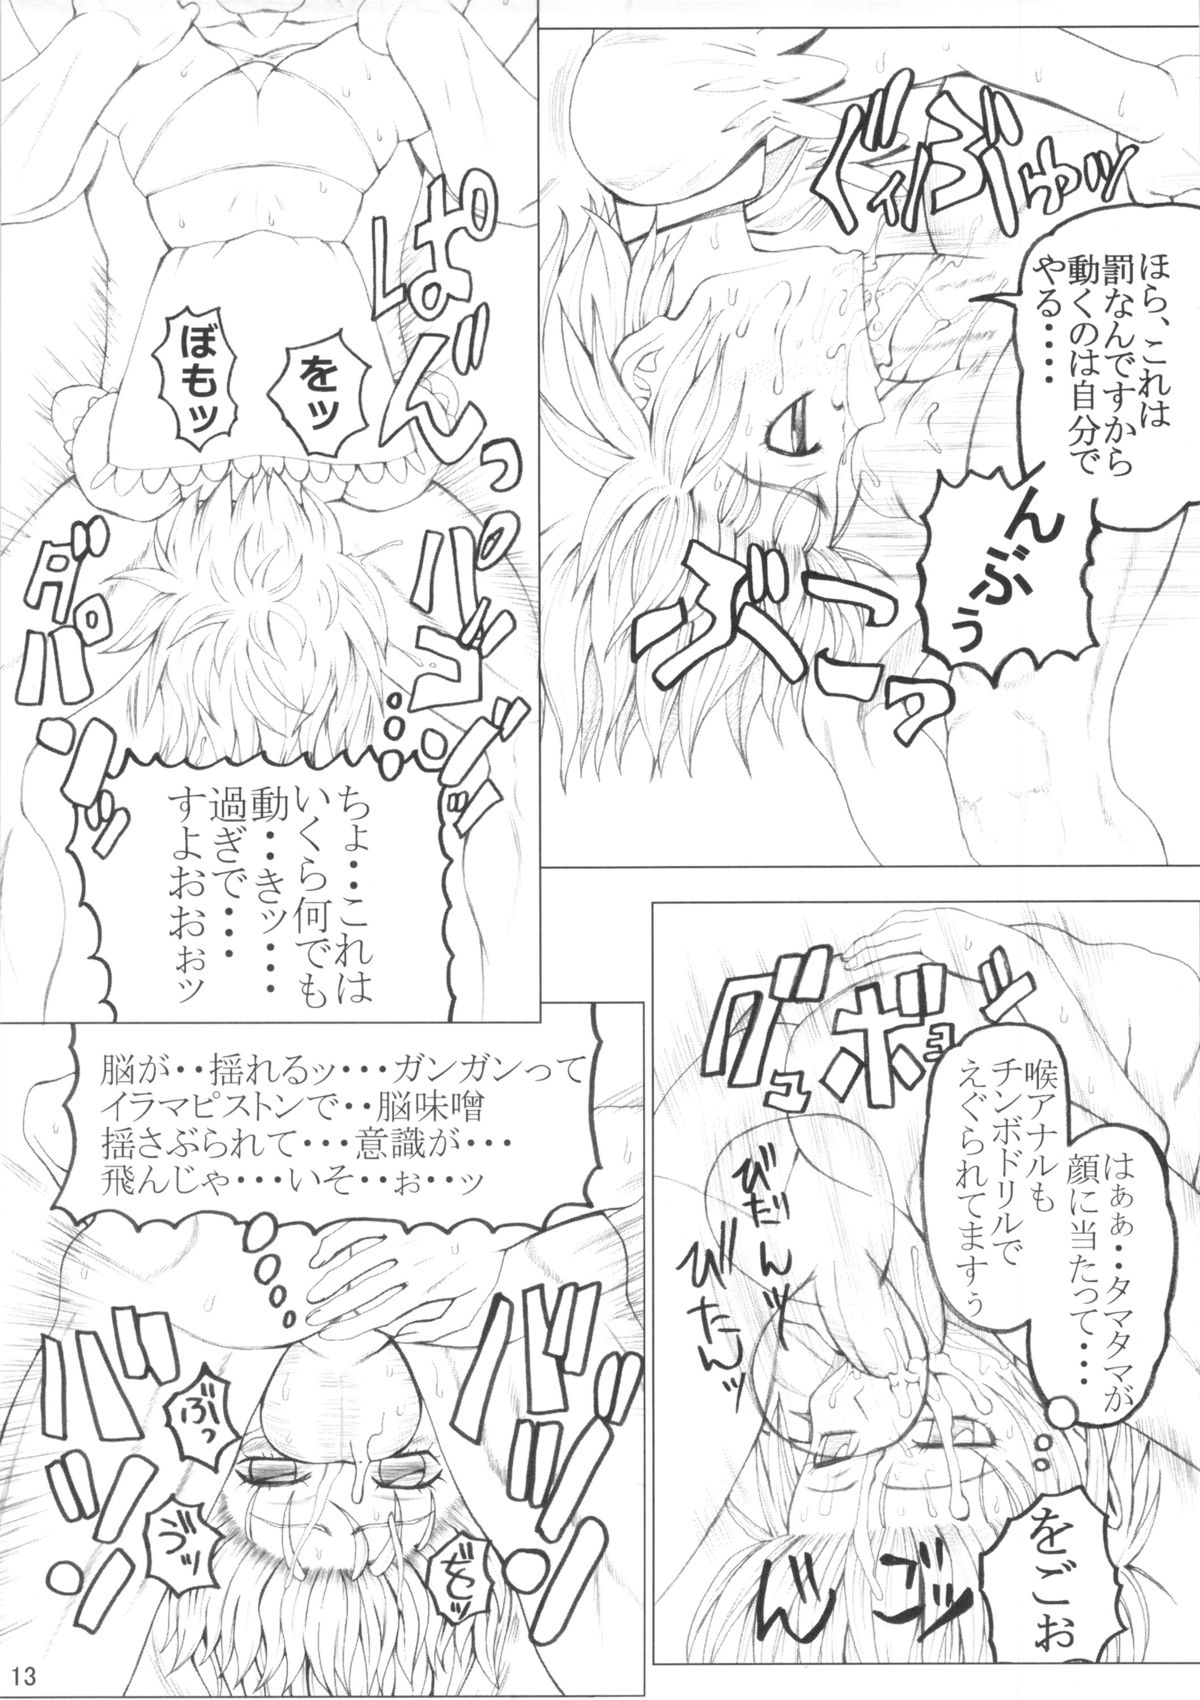 ほら、これは
罰なんですから
動くのは自分で
やる・・・・
ぐぃぶゅッ
んぶぅ
ぶつっ
ぱぁんっ
をッ
ぼもッ
パゴンッ
ダパンッ
ちょ・・これは
いくら何でも
動・・きッ・・・
過ぎで・・・・
すよおおぉッ
グュボョンッ
はぁぁ・・タマタマが
顔に当たって・・・・
喉アナルも
チンボドリルで
えぐられてますぅ
びだんッ
びたんッ
をごお
ゴッ
脳が・・揺れるッ・・・ガンガンって
イラマピストンで・・脳味噌
揺さぶられて・・・意識が・・・
飛んじゃ・・・いそ・・ぉ・・ッ
バンッ
バンッ
ぶっ
づッ
13